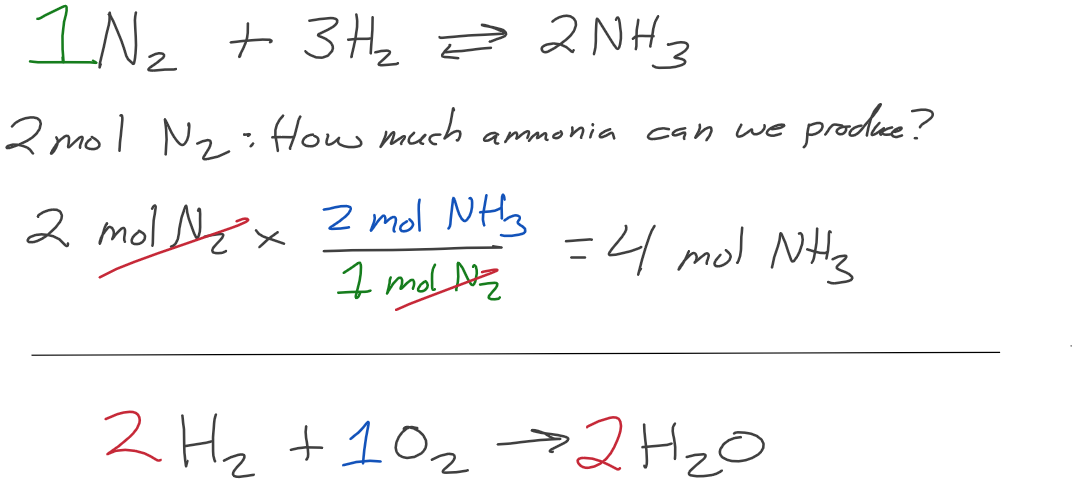 1N₂ + 3H₂ ⇌ 2NH₃
2 mol N₂: How much ammonia can we produce?
2 mol N₂ × 2 mol NH₃ / 1 mol N₂ = 4 mol NH₃
2H₂ + 1O₂ → 2H₂O